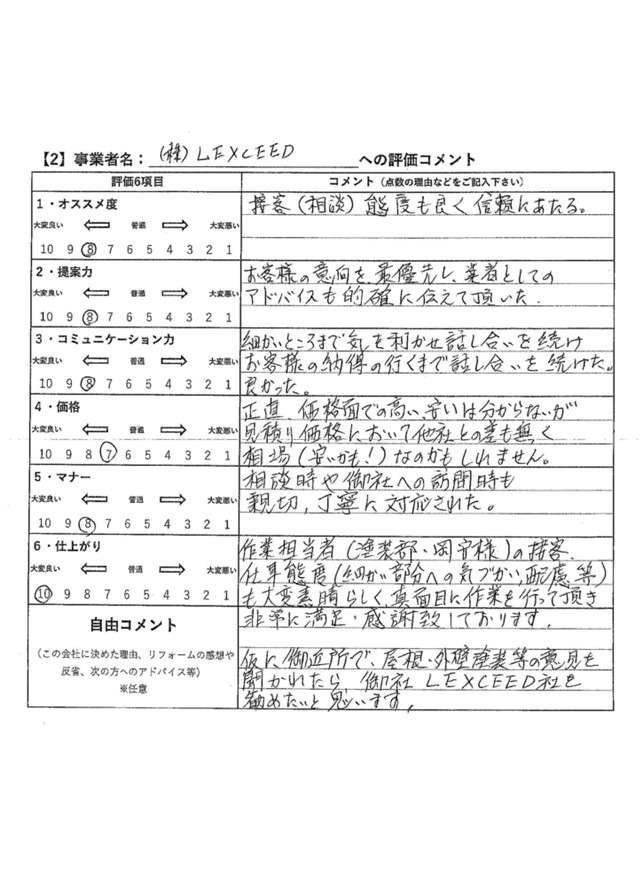 【2】事業者名：(株) LEXCEED への評価コメント
評価6項目 コメント（点数の理由などをご記入下さい）
1・オススメ度
大変良い 普通 大変悪い
10 9 8 7 6 5 4 3 2 1
接客(相談)態度も良く信頼にあたる。
2・提案力
大変良い 普通 大変悪い
10 9 8 7 6 5 4 3 2 1
お客様の意向を、最優先し、業者としての
アドバイスも的確に伝えて頂いた.
3・コミュニケーション力
大変良い 普通 大変悪い
10 9 8 7 6 5 4 3 2 1
細かいところまで気を利かせ話し合いを続け
お客様の納得の行くまで話し合いを続けた。
良かった。
4・価格
大変良い 普通 大変悪い
10 9 8 7 6 5 4 3 2 1
正直、価格面での高い、安いは分からないが
見積り価格において他社との差も無く
相場(安いかも!)なのかもしれません。
5・マナー
大変良い 普通 大変悪い
10 9 8 7 6 5 4 3 2 1
相談時や御社への訪問時も
親切,丁寧に対応された。
6・仕上がり
大変良い 普通 大変悪い
10 9 8 7 6 5 4 3 2 1
作業担当者(塗装部・岡安様)の接客.
仕事態度(細かい部分への気づかい,配慮等)
も大変素晴らしく,真面目に作業を行って頂き
非常に満足・感謝致しております.
自由コメント
（この会社に決めた理由、リフォームの感想や
反省、次の方へのアドバイス等）
※任意
仮に御近所で、屋根・外壁塗装等の意見を
聞かれたら 御社 LEXCEED社を
勧めたいと思います,